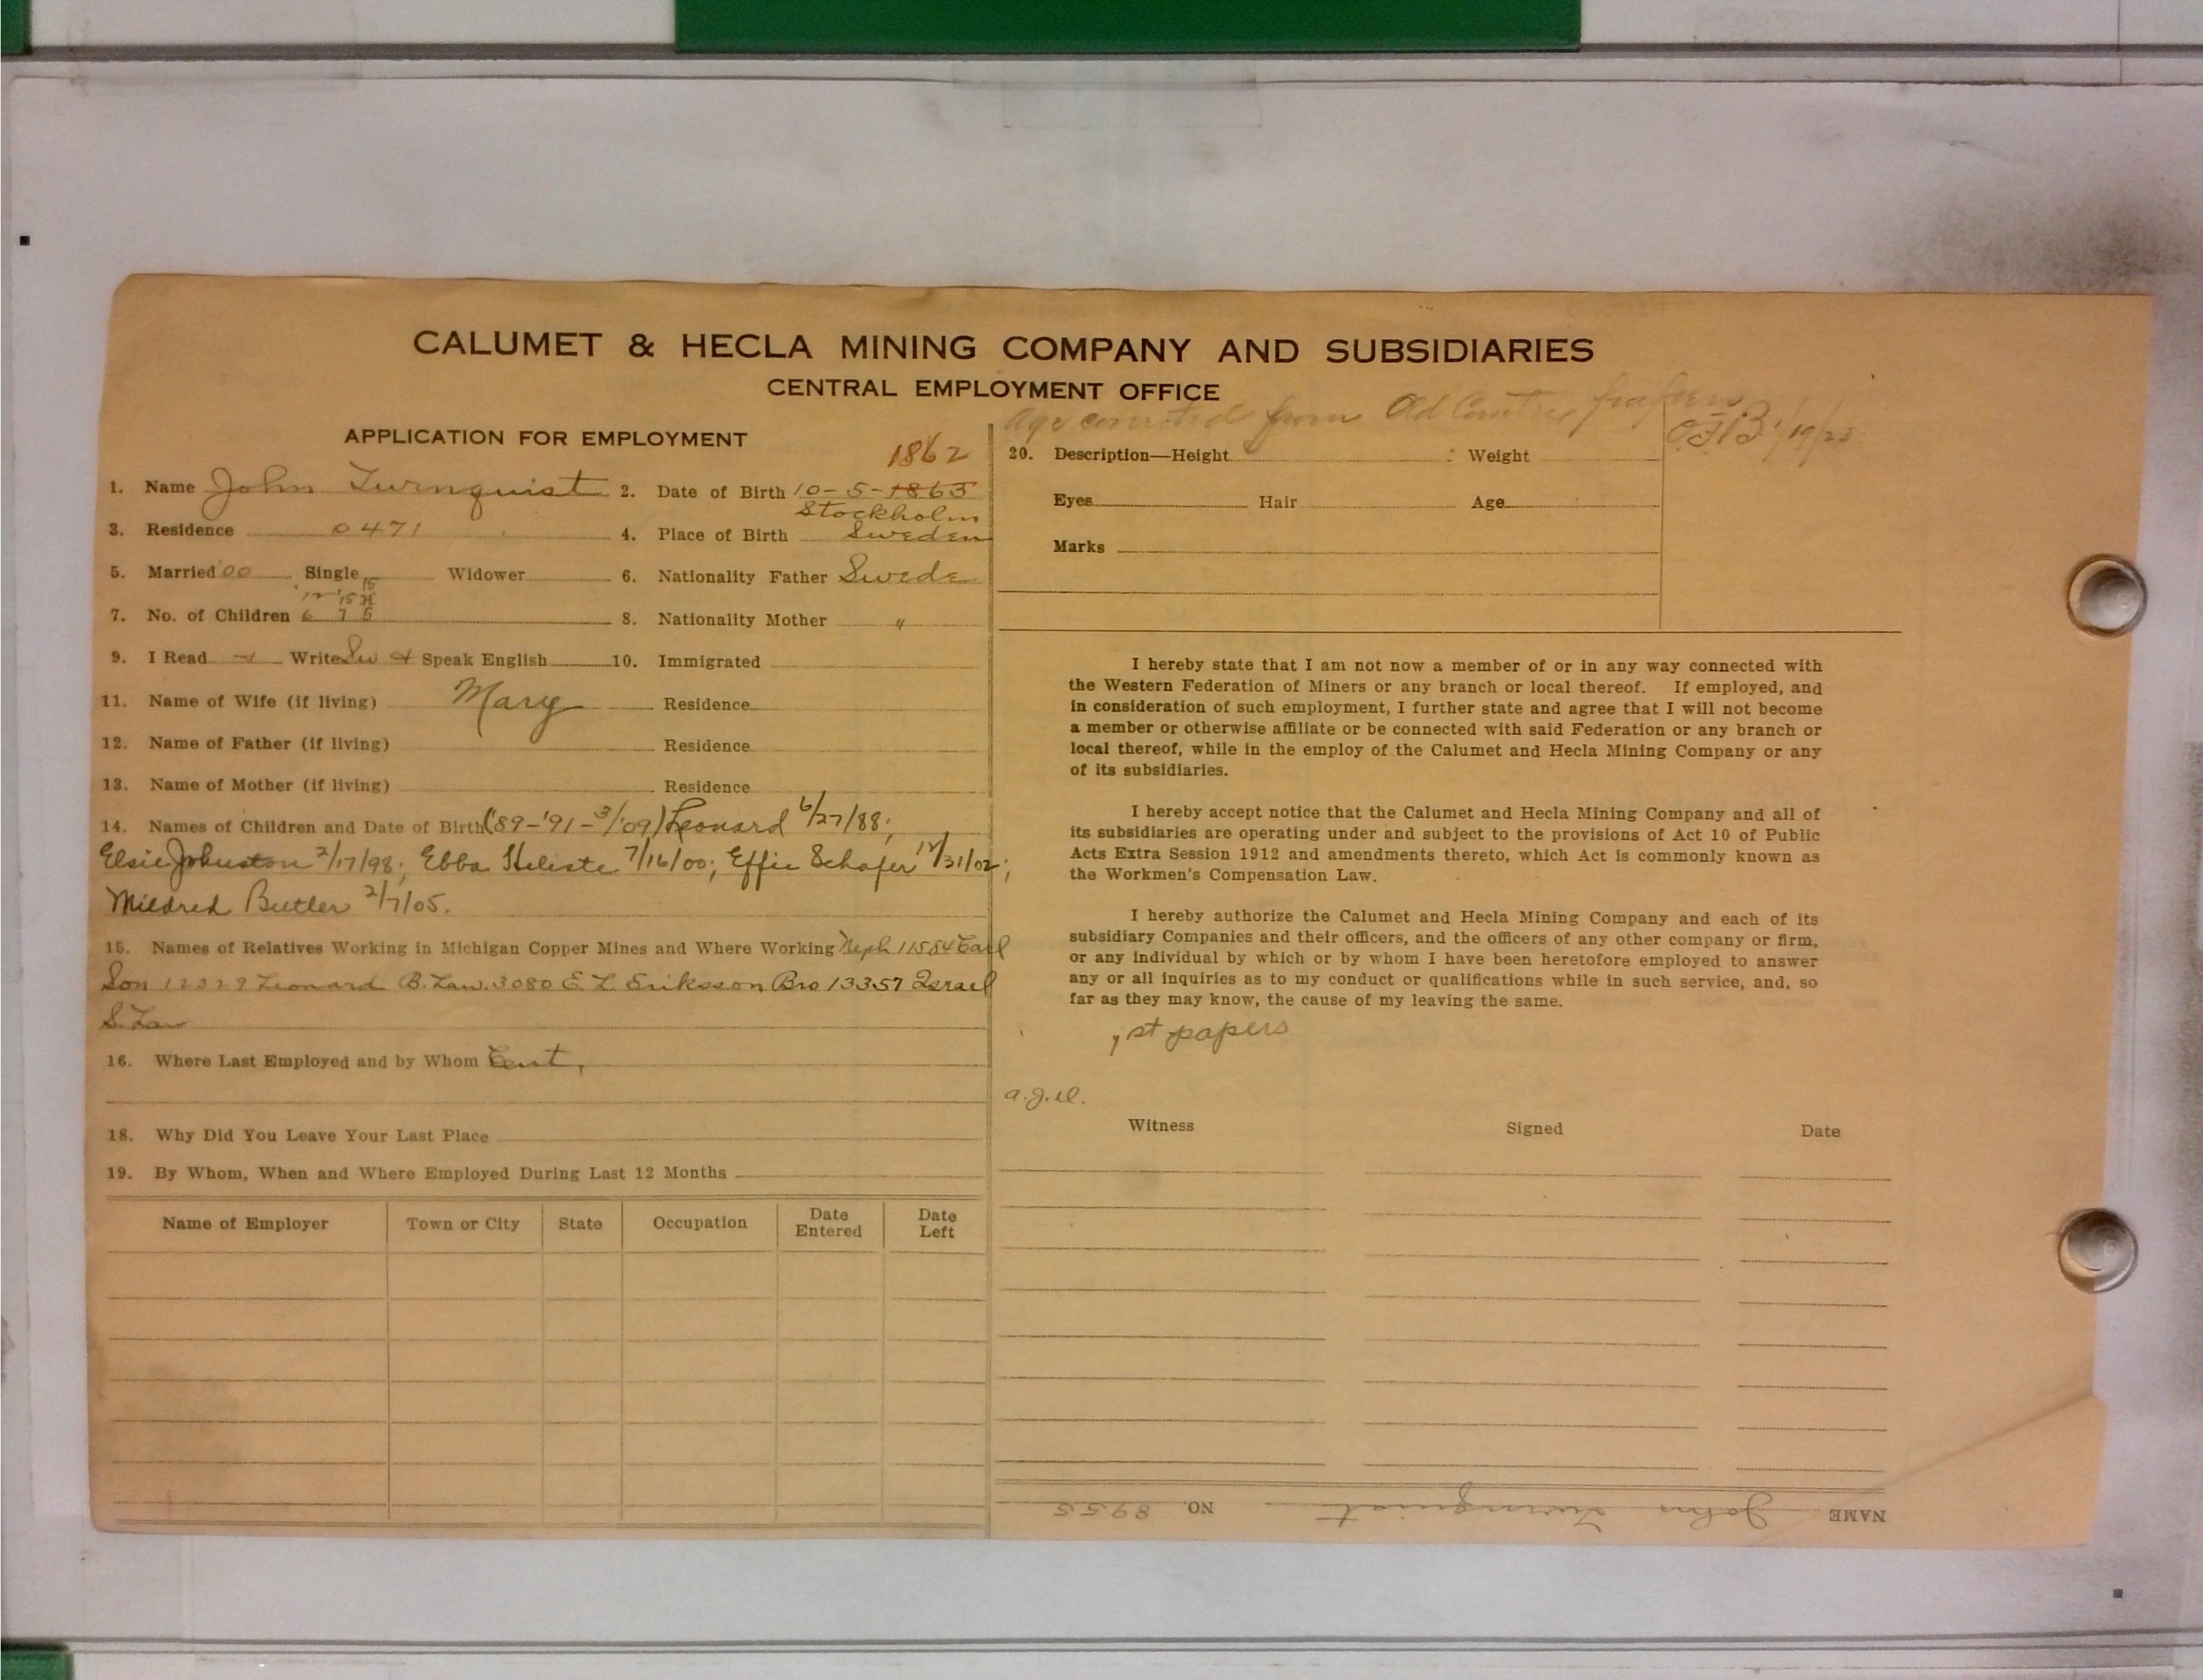 CALUMET & HECLA MINING COMPANY AND SUBSIDIARIES
CENTRAL EMPLOYMENT OFFICE
APPLICATION FOR EMPLOYMENT
1862
1. Name John Turnquist 2. Date of Birth 10-5-1863
Stockholm
3. Residence 0471 4. Place of Birth Sweden
5. Married '00 Single Widower 6. Nationality Father Swede
7. No. of Children 6 7 5 8. Nationality Mother "
9. I Read Write Sw Speak English 10. Immigrated
11. Name of Wife (if living) Mary Residence
12. Name of Father (if living) Residence
13. Name of Mother (if living) Residence
14. Names of Children and Date of Birth ('89-'91-3/'09) Leonard 6/27/88;
Elsie Johnston 2/17/98; Ebba 7/16/00; Effie Schafer 12/31/02;
Mildred Butler 2/7/05.
15. Names of Relatives Working in Michigan Copper Mines and Where Working Neph 11584 Carl
Son 12329 Leonard B. Law. 3080 E. L. Eriksson Bro 13357 Israel
S. Law
16. Where Last Employed and by Whom Cent,
18. Why Did You Leave Your Last Place
19. By Whom, When and Where Employed During Last 12 Months
Name of Employer Town or City State Occupation Date Entered Date Left
Age corrected from Old Country papers
1/19/23
20. Description—Height Weight
Eyes Hair Age
Marks
I hereby state that I am not now a member of or in any way connected with
the Western Federation of Miners or any branch or local thereof. If employed, and
in consideration of such employment, I further state and agree that I will not become
a member or otherwise affiliate or be connected with said Federation or any branch or
local thereof, while in the employ of the Calumet and Hecla Mining Company or any
of its subsidiaries.
I hereby accept notice that the Calumet and Hecla Mining Company and all of
its subsidiaries are operating under and subject to the provisions of Act 10 of Public
Acts Extra Session 1912 and amendments thereto, which Act is commonly known as
the Workmen's Compensation Law.
I hereby authorize the Calumet and Hecla Mining Company and each of its
subsidiary Companies and their officers, and the officers of any other company or firm,
or any individual by which or by whom I have been heretofore employed to answer
any or all inquiries as to my conduct or qualifications while in such service, and, so
far as they may know, the cause of my leaving the same.
1st papers
Witness Signed Date
NAME John Turnquist NO. 8955